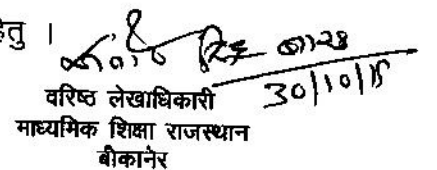 हेतु ।
30/10/15
वरिष्ठ लेखाधिकारी
माध्यमिक शिक्षा राजस्थान
बीकानेर